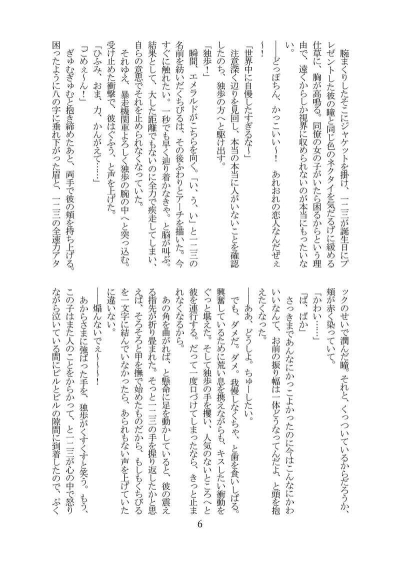 腕まくりしたそこにジャケットを掛け、一二三が誕生日にプ
レゼントした彼の瞳と同じ色のネクタイを気だるげに緩める
仕草に、胸が高鳴る。同僚の女の子がいたら困るからという理
由で、遠くからしか視界に収められないのが本当にもったいな
い。
――どっぽちん、かっこいい〜！　あれおれの恋人なんだぜぇ
〜！
「世界中に自慢したすぎるな〜」
注意深く辺りを見回し、本当の本当に人がいないことを確認
したのち、独歩の方へと駆け出す。
「独歩！」
瞬間、エメラルドがこちらを向く。「い、う、い」と一二三の
名前を紡いだくちびるは、その後ふわりとアーチを描いた。今
すぐに触れたい。一秒でも早く辿り着かなきゃ、と脳が叫ぶ。
結果として、大した距離でもないのに全力で疾走してしまい、
自らの意思でそれを止められなくなっていた。
それゆえ、暴走機関車よろしく独歩の腕の中へと突っ込む。
受け止めた衝撃で、彼はぐふぅ、と声を上げた。
「ひふみ、おま、力、かんがえて……」
「ごめぇ〜ん！」
ぎゅむぎゅむと抱き締めたあと、両手で彼の頬を持ち上げる。
困ったように八の字に垂れ下がった眉と、一二三の全速力アタ
ックのせいで潤んだ瞳。それと、くっついているからだろうか、
頬が赤く染まっていて。
「かわい……」
「ば、ばか」
さっきまであんなにかっこよかったのに今はこんなにかわ
いいなんて。お前の振り幅は一体どうなってんだよ、と頭を抱
えたくなった。
――ああ、どうしよ。ちゅーしたい。
でも、ダメだ。ダメ。我慢しなくちゃ、と歯を食いしばる。
興奮しているために荒い息を携えながらも、キスしたい衝動を
ぐっと堪えた。そして独歩の手を攫い、人気のないところへと
彼を連行する。だって一度口づけてしまったなら、きっと止ま
れなくなるから。
あの角を曲がれば、と懸命に足を動かしていると、彼の震え
る指先が折り畳まれた。そっと一二三の手を握り返したかと思
えば、そろそろと甲を撫で始めたものだから、もしもくちびる
を一文字に結んでいなかったら、あられもない声を上げていた
に違いない。
――煽んないでぇ〜〜〜〜！
あからさまに強ばった手を、独歩がくすくすと笑う。もう、
この子はまた人のことをからかって、と一二三が心の中で怒り
ながら泣いている間にビルとビルの隙間に到着したので、ぷく
6